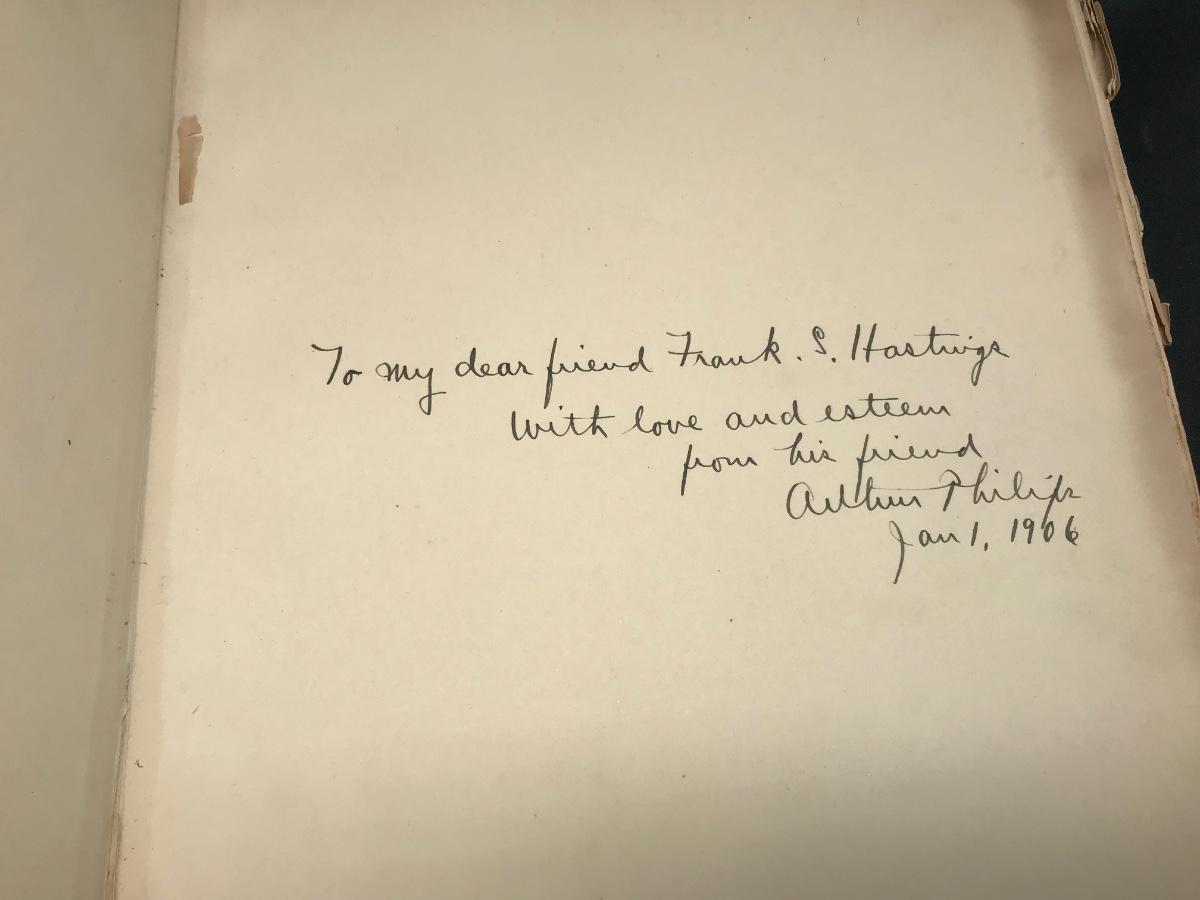 To my dear friend Frank. S. Hastings
With love and esteem
from his friend
Arthur Philips
Jan 1, 1906